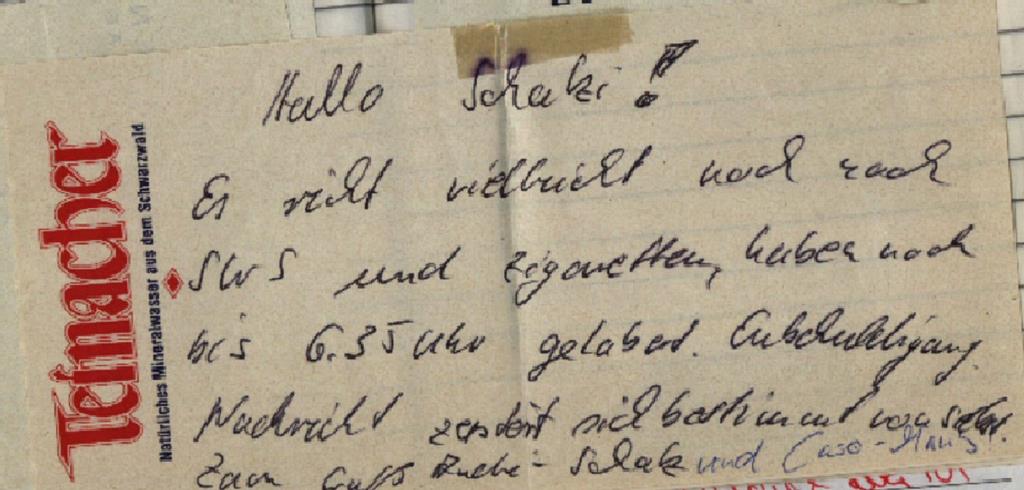 Teinacher
Natürliches Mineralwasser aus dem Schwarzwald
Hallo Schatzi!
Es riecht vielleicht noch nach
und Zigaretten, haben noch
bis 6.35 Uhr gelabert. Entschuldigung.
Nachricht zerstört sich bestimmt von selbst.
Schatz und